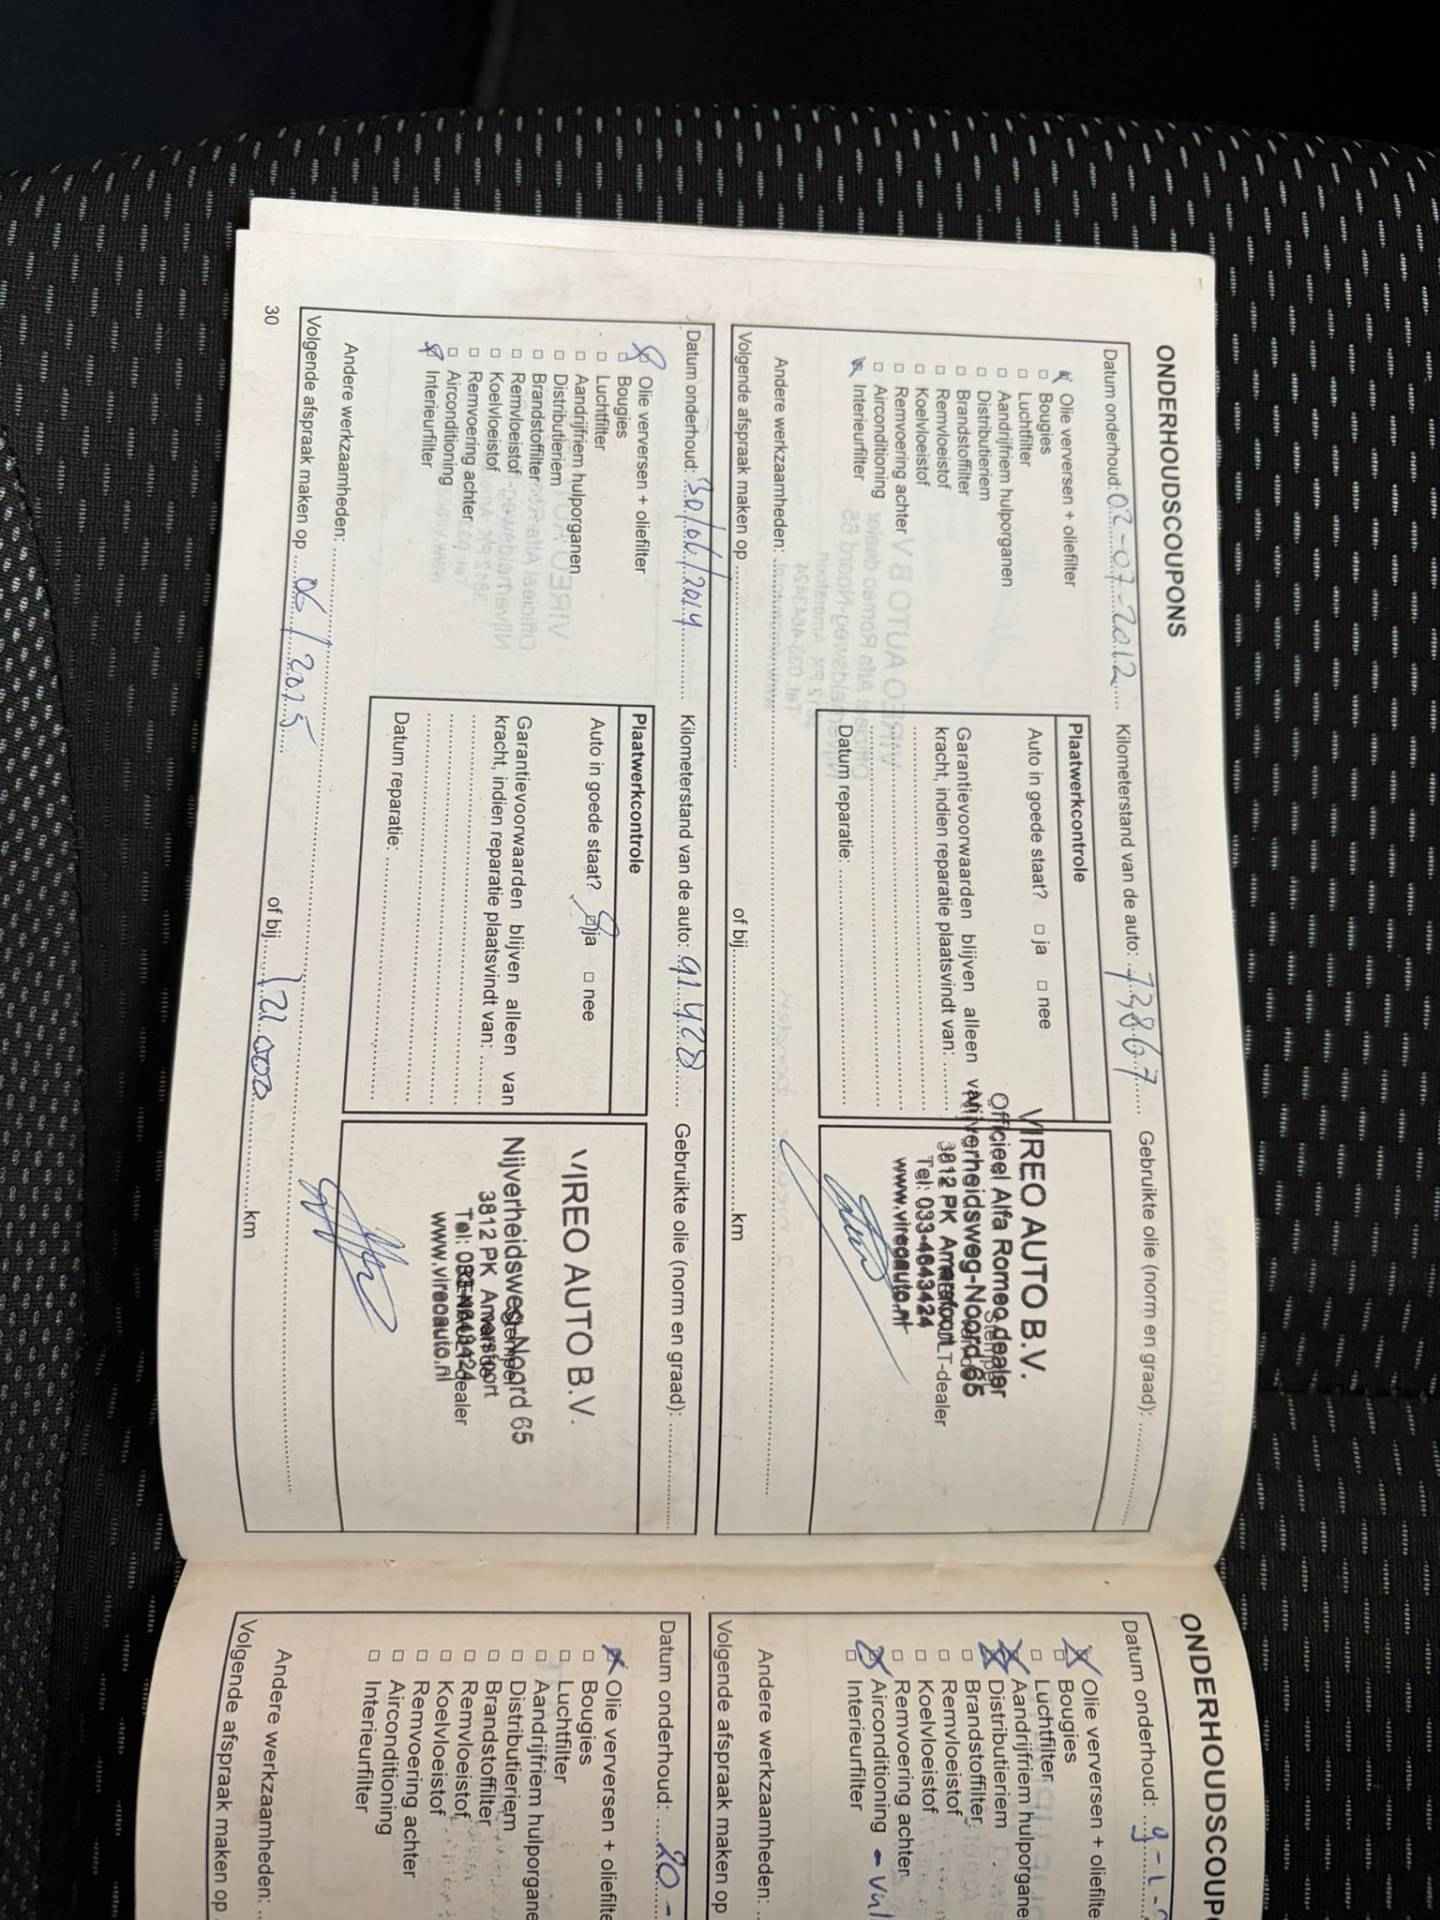 ONDERHOUDSCOUPONS
Datum onderhoud: 02-07-2012 Kilometerstand van de auto: 73867 Gebruikte olie (norm en graad):
Olie verversen + oliefilter
Bougies
Luchtfilter
Aandrijfriem hulporganen
Distributieriem
Brandstoffilter
Remvloeistof
Koelvloeistof
Remvoering achter
Airconditioning
Interieurfilter
Plaatwerkcontrole
Auto in goede staat? ja nee
Garantievoorwaarden blijven alleen van
kracht, indien reparatie plaatsvindt van:
Datum reparatie:
VIREO AUTO B.V.
Officieel Alfa Romeo dealer
Nijverheidsweg-Noord 65
3812 PK Amersfoort
Tel: 033-4643424
www.vireoauto.nl
Andere werkzaamheden:
Volgende afspraak maken op of bij km
Datum onderhoud: 30/06/2014 Kilometerstand van de auto: 91428 Gebruikte olie (norm en graad):
Olie verversen + oliefilter
Bougies
Luchtfilter
Aandrijfriem hulporganen
Distributieriem
Brandstoffilter
Remvloeistof
Koelvloeistof
Remvoering achter
Airconditioning
Interieurfilter
Plaatwerkcontrole
Auto in goede staat? ja nee
Garantievoorwaarden blijven alleen van
kracht, indien reparatie plaatsvindt van:
Datum reparatie:
VIREO AUTO B.V.
Nijverheidsweg-Noord 65
3812 PK Amersfoort
Tel: 033-4643424
www.vireoauto.nl
Andere werkzaamheden:
Volgende afspraak maken op 06/2015 of bij 121.000 km
30
ONDERHOUDSCOUP
Datum onderhoud: 9-1-
Olie verversen + oliefilte
Bougies
Luchtfilter
Aandrijfriem hulporgane
Distributieriem
Brandstoffilter
Remvloeistof
Koelvloeistof
Remvoering achter
Airconditioning - vul
Interieurfilter
Andere werkzaamheden:
Volgende afspraak maken op
Datum onderhoud: 20-
Olie verversen + oliefilte
Bougies
Luchtfilter
Aandrijfriem hulporgane
Distributieriem
Brandstoffilter
Remvloeistof
Koelvloeistof
Remvoering achter
Airconditioning
Interieurfilter
Andere werkzaamheden:
Volgende afspraak maken op